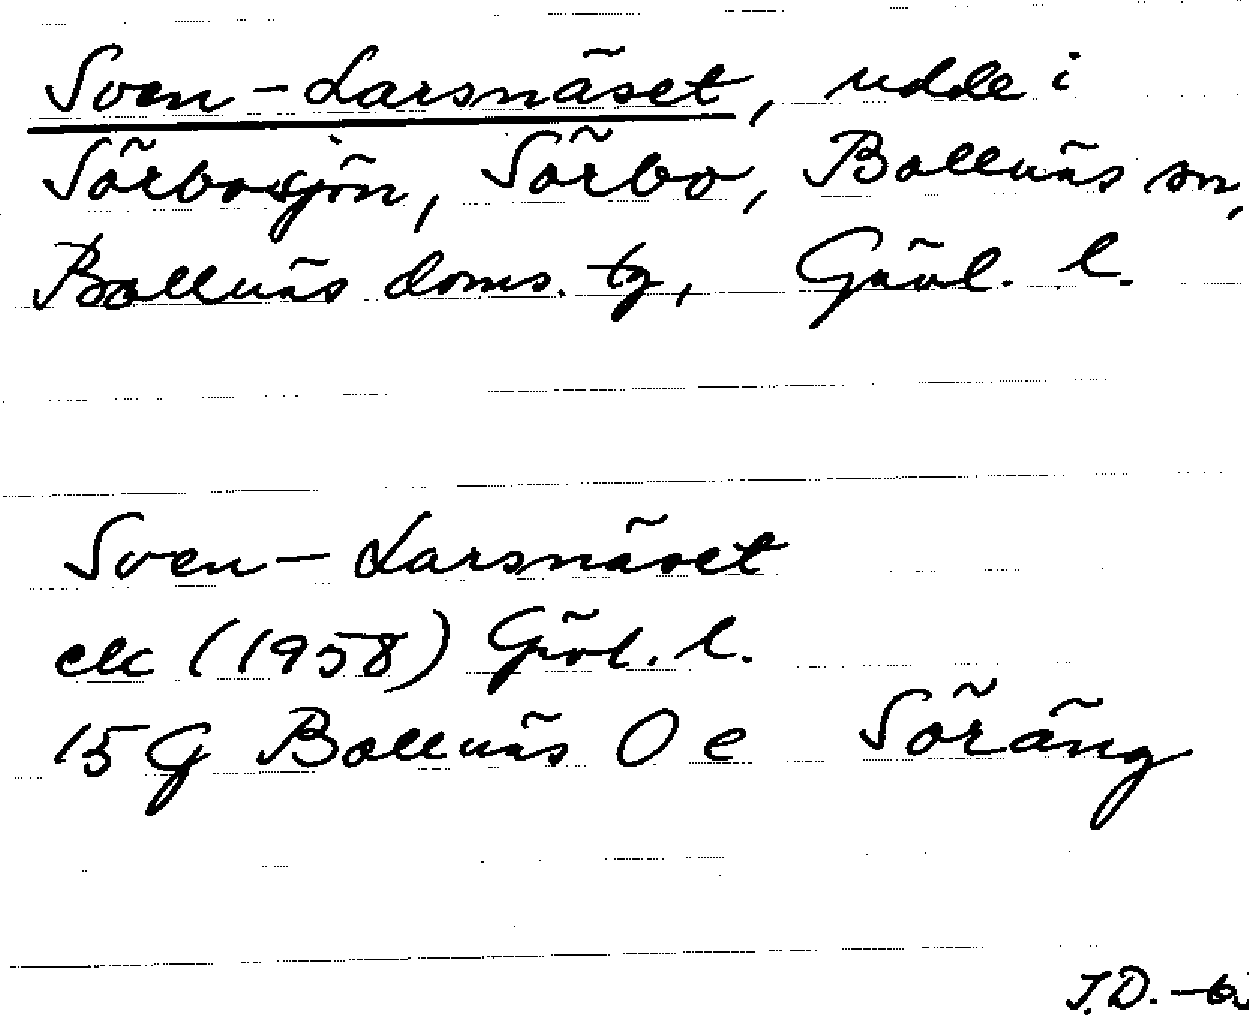 Sven-Larsnäset, udde i
Sörbosjön, Sörbo, Bollnäs sn,
Bollnäs doms. tg, Gävl. l.
Sven-Larsnäset
ek (1958) Gävl. l.
15 G Bollnäs O e Söräng
J.D.